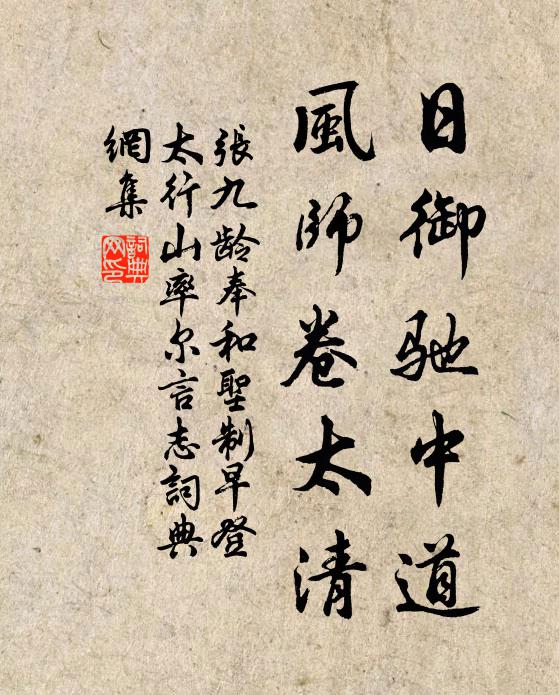 日御馳中道
風師卷太清
張九齡奉和聖制早登
太行山率尔言志詞典
網集
詞典网印